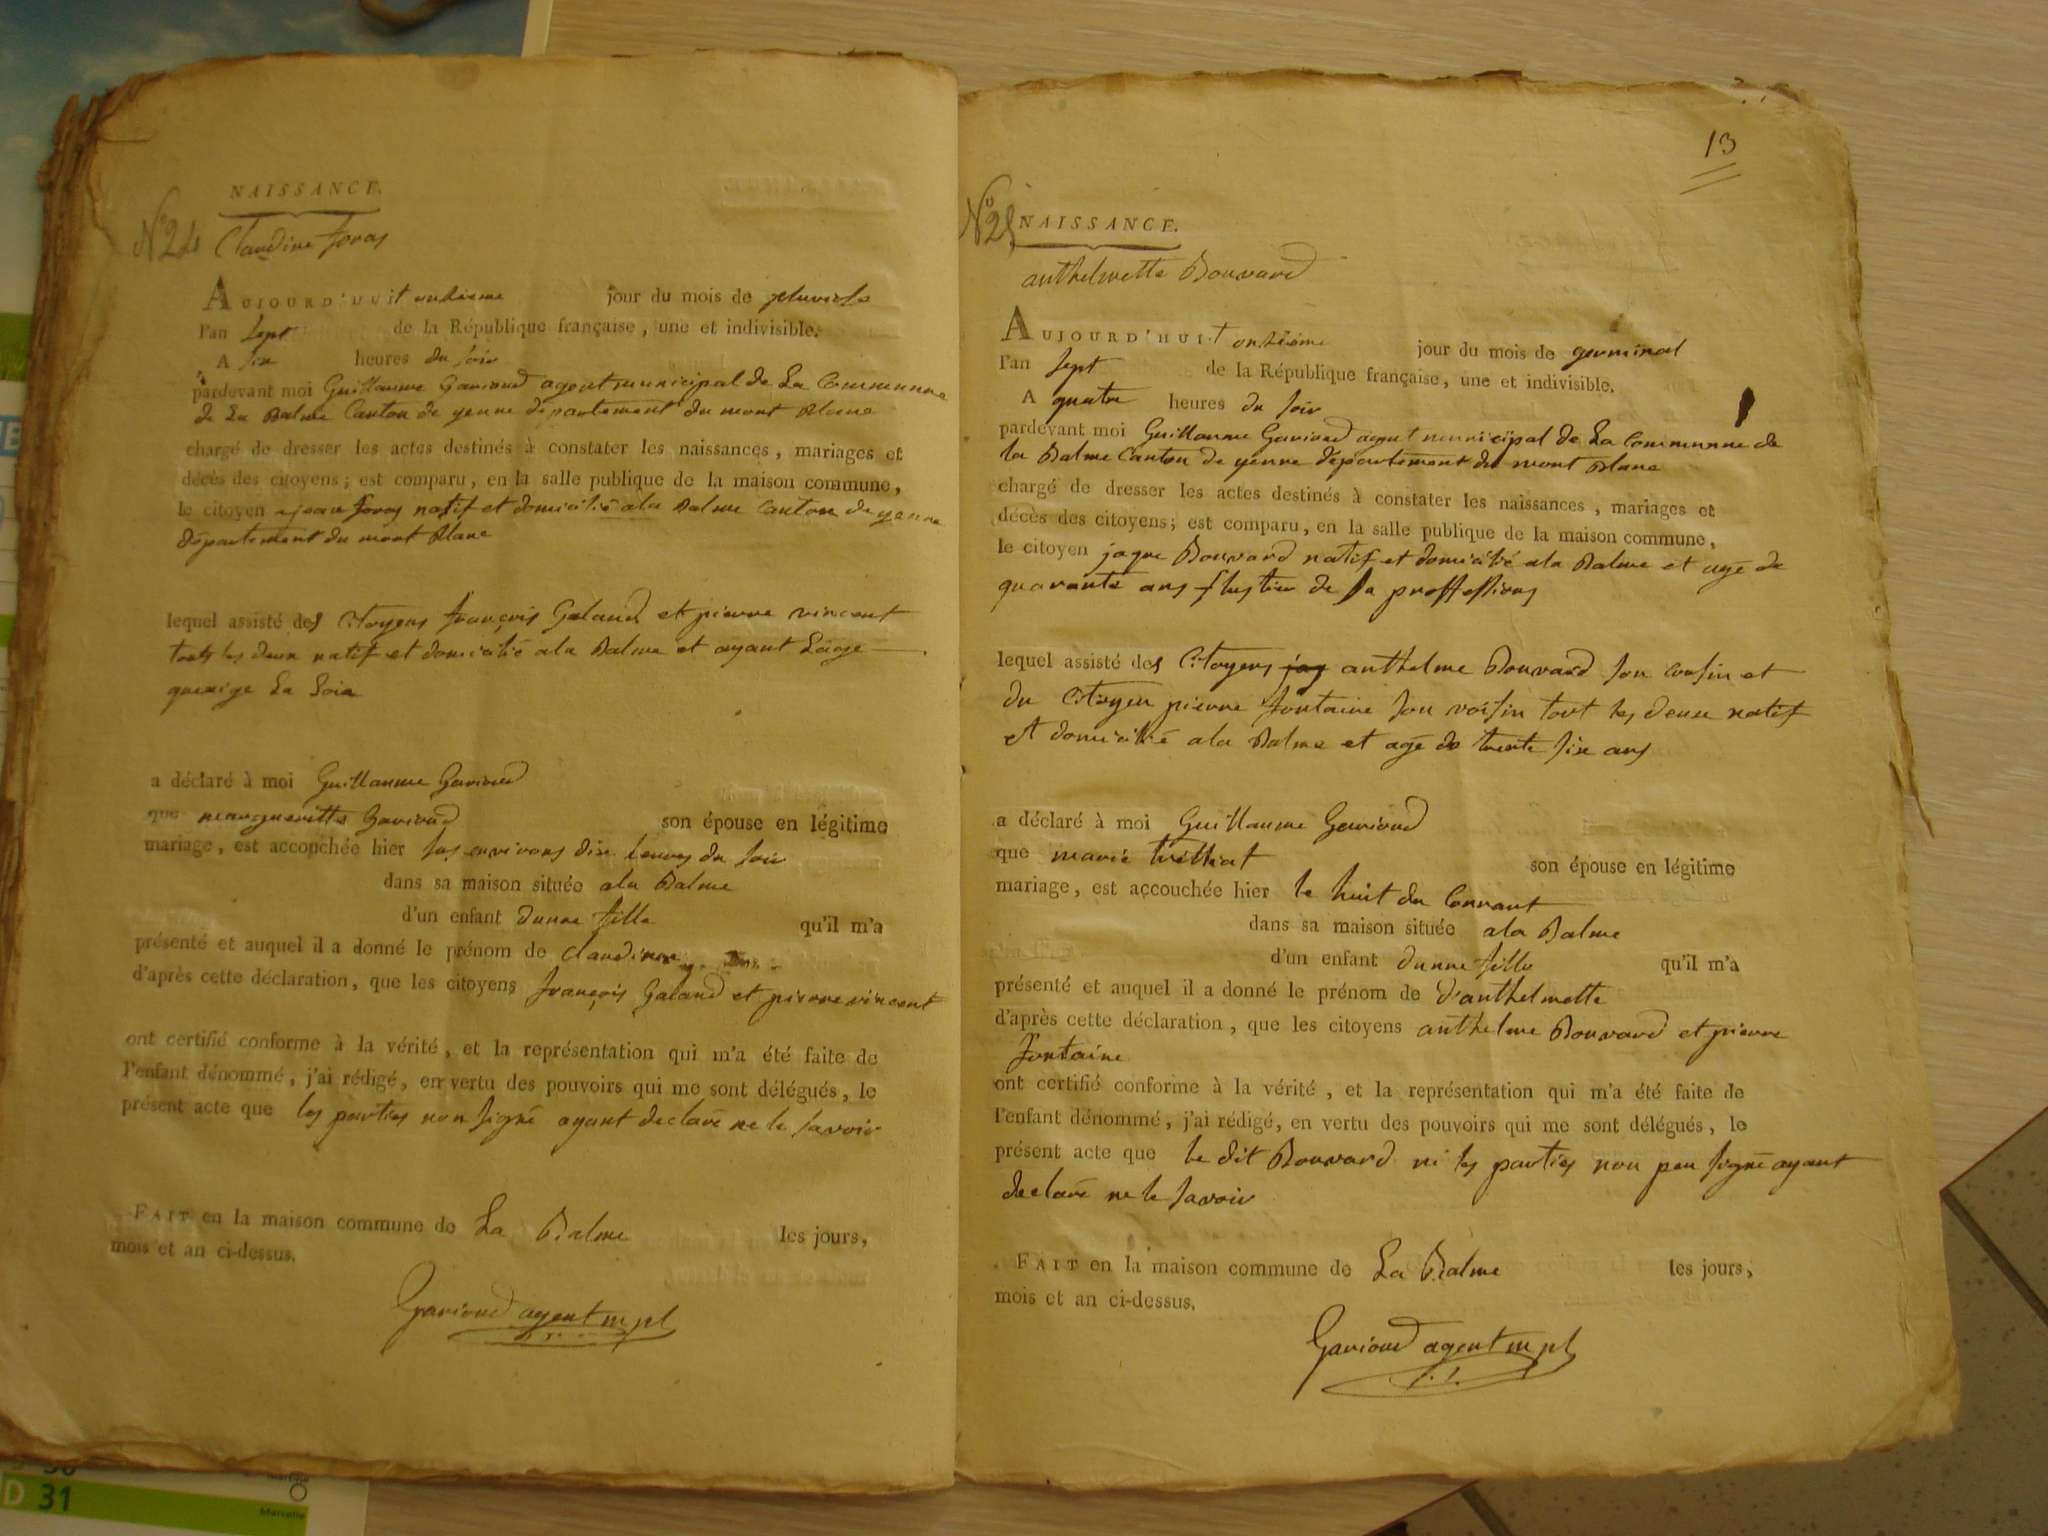 NAISSANCE.
N° 24 Claudine foras
AUJOURD'HUit ondieme jour du mois de pluviose
l'an sept de la République française, une et indivisible.
A six heures du soir
pardevant moi Guillaume Gavioud agent municipal de La Commune
de La Balme Canton de yenne département du mont Blanc
chargé de dresser les actes destinés à constater les naissances, mariages et
décès des citoyens; est comparu, en la salle publique de la maison commune,
le citoyen jean foras natif et domicilié ala Balme Canton de yenne
département du mont Blanc
lequel assisté des Citoyens françois Galand et pierre vincent
touts les deux natif et domicilié ala Balme et ayant Lâge
quexige La Loix
a déclaré à moi Guillaume Gavioud
que margueritte Gavioud son épouse en légitime
mariage, est accouchée hier les environs dix heures du soir
dans sa maison située ala Balme
d'un enfant dunne fille qu'il m'a
présenté et auquel il a donné le prénom de claudine
d'après cette déclaration, que les citoyens françois Galand et pierre vincent
ont certifié conforme à la vérité, et la représentation qui m'a été faite de
l'enfant dénommé, j'ai rédigé, en vertu des pouvoirs qui me sont délégués, le
présent acte que les parties non signé ayant declaré ne le savoir
FAIT en la maison commune de La Balme les jours,
mois et an ci-dessus.
Gavioud agent mpl
13
N° 25 NAISSANCE.
anthelmette Bouvard
AUJOURD'HUIt onsième jour du mois de germinal
l'an sept de la République française, une et indivisible.
A quatre heures du soir
pardevant moi Guillaume Gavioud agent municipal de La Commune de
la Balme Canton de yenne département du mont Blanc
chargé de dresser les actes destinés à constater les naissances, mariages et
décès des citoyens; est comparu, en la salle publique de la maison commune,
le citoyen jaque Bouvard natif et domicilié ala Balme et agé de
quarante ans flustier de sa proffessions
lequel assisté des Citoyens jaq anthelme Bouvard son cousin et
du Citoyen pierre fontaine son voisin tout les deux natif
et domicilié ala Balme et agé de trente six ans
a déclaré à moi Guillaume Gavioud
que marie trilliat son épouse en légitime
mariage, est accouchée hier le huit du Courant
dans sa maison située ala Balme
d'un enfant dunne fille qu'il m'a
présenté et auquel il a donné le prénom de d'anthelmette
d'après cette déclaration, que les citoyens anthelme Bouvard et pierre
fontaine
ont certifié conforme à la vérité, et la représentation qui m'a été faite de
l'enfant dénommé, j'ai rédigé, en vertu des pouvoirs qui me sont délégués, le
présent acte que le dit Bouvard ni les parties non peu signé ayant
declaré ne le savoir
FAIT en la maison commune de La Balme les jours,
mois et an ci-dessus.
Gavioud agent mpl
D 31